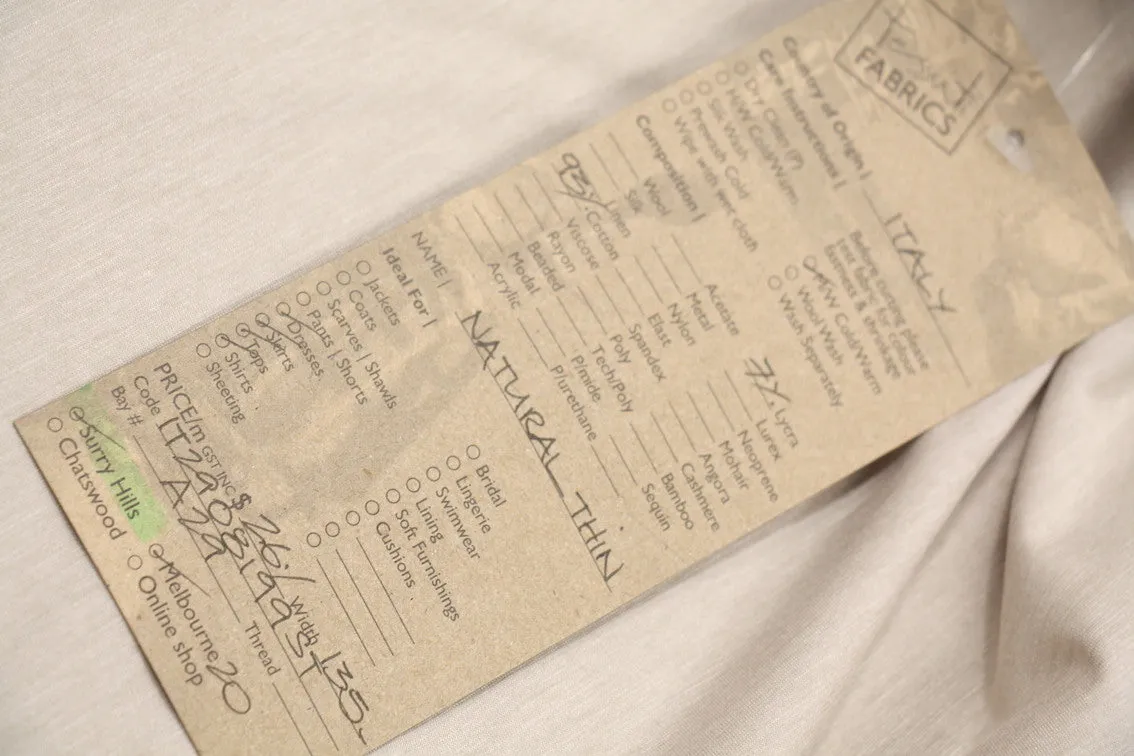 Tessuti
FABRICS
Country of Origin | ITALY
Care Instructions |
Dry Clean (P)
H/W Cold/Warm
Silk Wash
Prewash Cold
Wipe with wet cloth
Before cutting please
test fabric for colour
fastness & shrinkage
M/W Cold/Warm
Wool Wash
Wash Separately
Composition |
Wool
Silk
Linen
93% Cotton
Viscose
Rayon
Beaded
Modal
Acrylic
Acetate
Metal
Nylon
Elast
Spandex
Poly
Tech/Poly
P/imide
P/urethane
7% Lycra
Lurex
Neoprene
Mohair
Angora
Cashmere
Bamboo
Sequin
NAME | NATURAL THIN
Ideal For |
Jackets
Coats
Scarves | Shawls
Pants | Shorts
Dresses
Skirts
Tops
Shirts
Sheeting
Bridal
Lingerie
Swimwear
Lining
Soft Furnishings
Cushions
PRICE/m GST INC $ 26/ Width 135
Code IT290819
Bay # A29 Thread
Surry Hills
Chatswood
Melbourne 20
Online shop